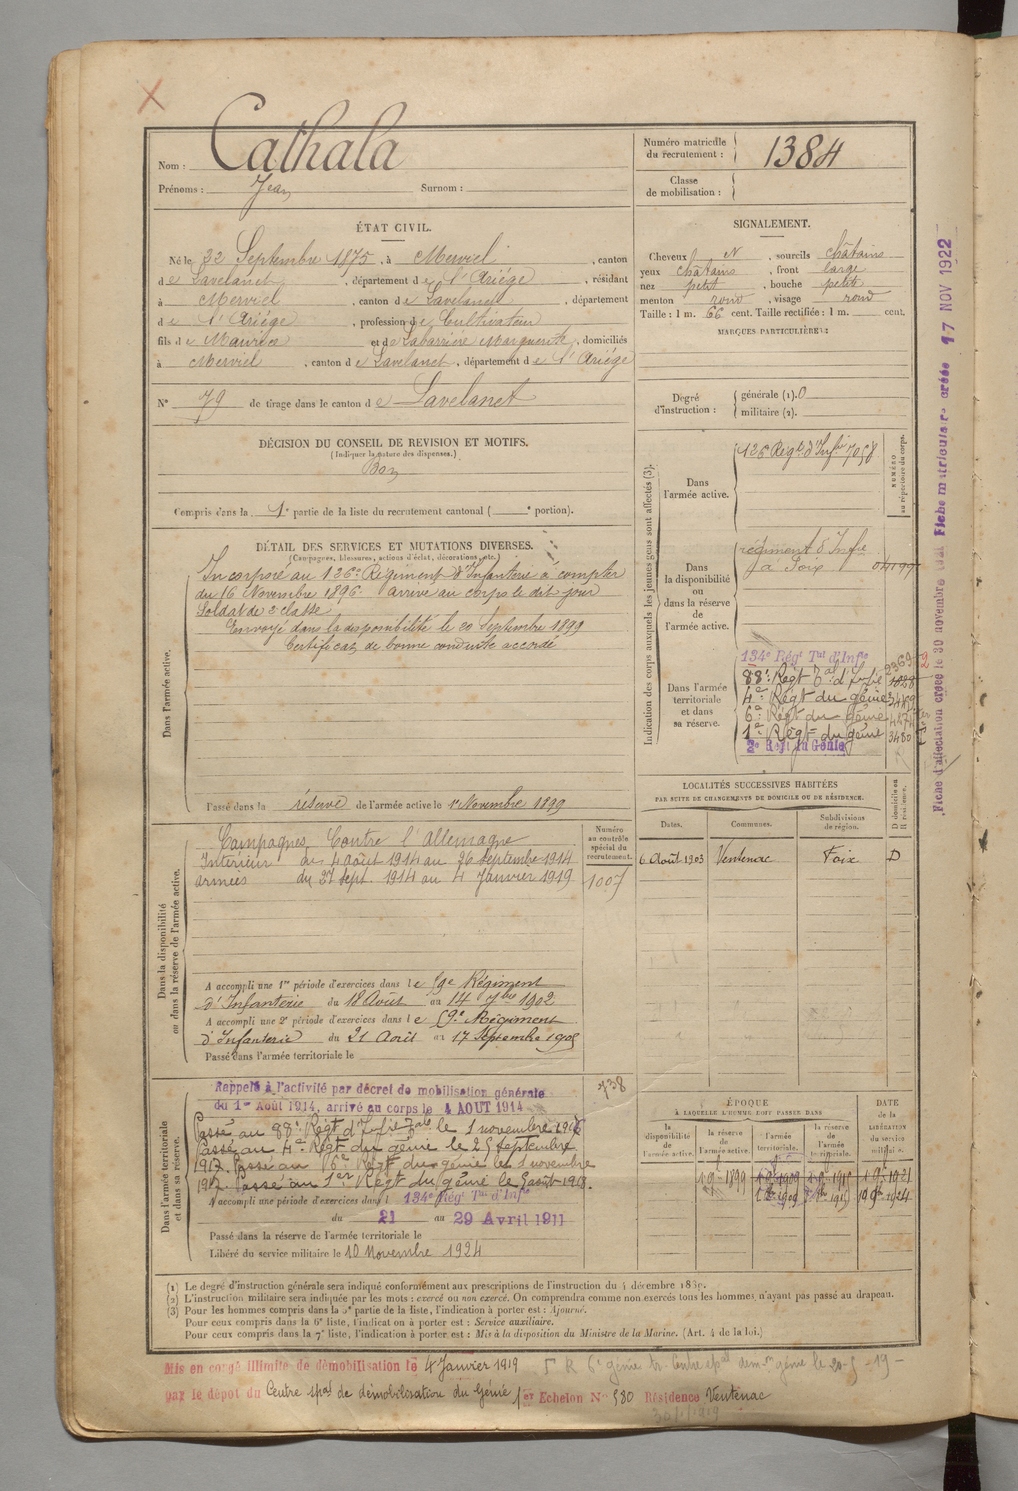 Nom : Cathala
Prénoms : Jean Surnom :
Numéro matricule du recrutement : 1384
Classe de mobilisation :
ÉTAT CIVIL.
Né le 22 Septembre 1875, à Merviel, canton
de Lavelanet, département de l'Ariége, résidant
à Merviel, canton de Lavelanet, département
de l'Ariége, profession de Cultivateur
fils de Maurice et de Labarrière Marguerite, domiciliés
à Merviel, canton de Lavelanet, département de l'Ariége
N° 79 de tirage dans le canton de Lavelanet
SIGNALEMENT.
Cheveux N, sourcils châtains
yeux châtains, front large
nez petit, bouche petite
menton rond, visage rond
Taille : 1 m. 66 cent. Taille rectifiée : 1 m. cent.
MARQUES PARTICULIÈRES :
Degré d'instruction : générale (1). 0
militaire (2).
DÉCISION DU CONSEIL DE REVISION ET MOTIFS.
(Indiquer la nature des dispenses.)
Bon
Compris dans la 1e partie de la liste du recrutement cantonal ( e portion).
DÉTAIL DES SERVICES ET MUTATIONS DIVERSES.
(Campagnes, blessures, actions d'éclat, décorations, etc.)
Dans l'armée active.
Incorporé au 126e Régiment d'Infanterie à compter
du 16 Novembre 1896. arrivé au corps le dit jour
Soldat de 2e classe.
Envoyé dans la disponibilité le 20 Septembre 1899
Certificat de bonne conduite accordé
Passé dans la réserve de l'armée active le 1er Novembre 1899
Indication des corps auxquels les jeunes gens sont affectés (3).
NUMÉRO au répertoire du corps.
Dans l'armée active.
126 Régt d'Infie 7058
Dans la disponibilité ou dans la réserve de l'armée active.
régiment d'Infie
à Foix
Dans l'armée territoriale et dans sa réserve.
134e Régt Tal d'Infie
88e Régt Tal d'Infie
4e Régt du génie
6e Régt du génie
1er Régt du génie 3480
2e Régt du Génie
LOCALITÉS SUCCESSIVES HABITÉES
PAR SUITE DE CHANGEMENTS DE DOMICILE OU DE RÉSIDENCE.
Dates. Communes. Subdivisions de région. D domicile ou R résidence.
6 Août 1903 Ventenac Foix D
Dans la disponibilité ou dans la réserve de l'armée active.
Numéro au contrôle spécial du recrutement.
1007
Campagnes Contre l'Allemagne
Intérieur du 4 août 1914 au 26 septembre 1914
armées du 27 sept. 1914 au 4 Janvier 1919
A accompli une 1re période d'exercices dans le 59e Régiment
d'Infanterie du 18 Août au 14 7bre 1902
A accompli une 2e période d'exercices dans le 59e Régiment
d'Infanterie du 21 Août au 17 Septembre 1905
Passé dans l'armée territoriale le
Dans l'armée territoriale et dans sa réserve.
738
Rappelé à l'activité par décret de mobilisation générale
du 1er Août 1914, arrivé au corps le 4 AOUT 1914
Passé au 88e Régt d'Infie Tale le 1 novembre 1916
Passé au 4e Régt du génie le 25 Septembre
1917. Passé au 6e Régt du génie le 1 novembre
1917. Passé au 1er Régt du génie le 5 août 1918.
A accompli une période d'exercices dans le 134e Régt Tal d'Infie
du 21 au 29 Avril 1911
Passé dans la réserve de l'armée territoriale le
Libéré du service militaire le 10 Novembre 1924
ÉPOQUE
À LAQUELLE L'HOMME DOIT PASSER DANS
la disponibilité de l'armée active. la réserve de l'armée active. l'armée territoriale. la réserve de l'armée territoriale.
DATE de la LIBÉRATION du service militaire.
(1) Le degré d'instruction générale sera indiqué conformément aux prescriptions de l'instruction du 4 décembre 1889.
(2) L'instruction militaire sera indiquée par les mots : exercé ou non exercé. On comprendra comme non exercés tous les hommes n'ayant pas passé au drapeau.
(3) Pour les hommes compris dans la 5e partie de la liste, l'indication à porter est : Ajourné.
Pour ceux compris dans la 6e liste, l'indication à porter est : Service auxiliaire.
Pour ceux compris dans la 7e liste, l'indication à porter est : Mis à la disposition du Ministre de la Marine. (Art. 4 de la loi.)
Mis en congé illimité de démobilisation le 4 Janvier 1919
par le dépôt du Centre spal de démobilisation du Génie 1er Echelon N° 980 Résidence Ventenac
Fiche d'affectation créée le 30 novembre 1921 Fiche matriculaire créée 17 NOV 1922